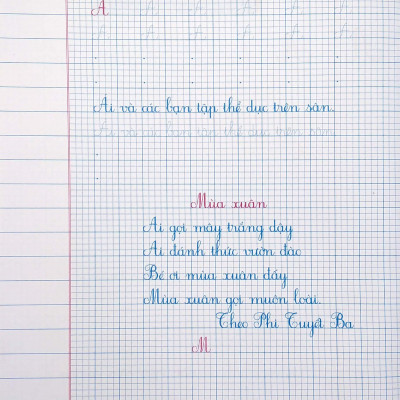 A
A A A A A A
Ai và các bạn tập thể dục trên sân.
Ai và các bạn tập thể dục trên sân.
Mùa xuân
Ai gọi mây trắng dậy
Ai đánh thức vườn đào
Bé ơi mùa xuân đấy
Mùa xuân gọi muôn loài.
Theo Phi Tuyết Ba
M